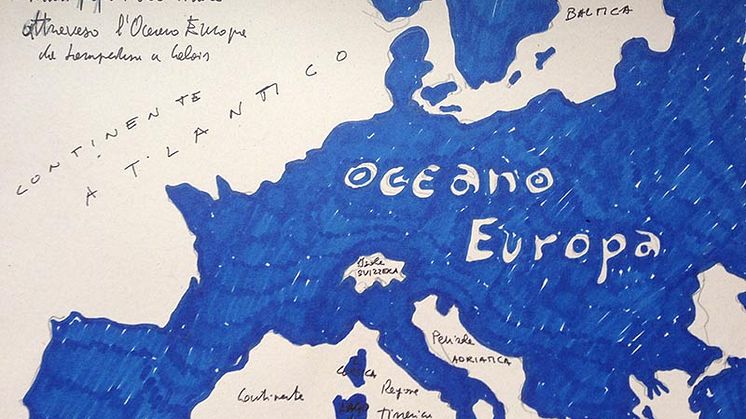 attraverso l'Oceano Europa
da Lampedusa a Calais
BALTICA
CONTINENTE
ATLANTICO
OCEANO
EUROPA
Isole
SVIZZERA
Penisola
ADRIATICA
CORSICA
Continente
Regione
LAGO
Tirrenica